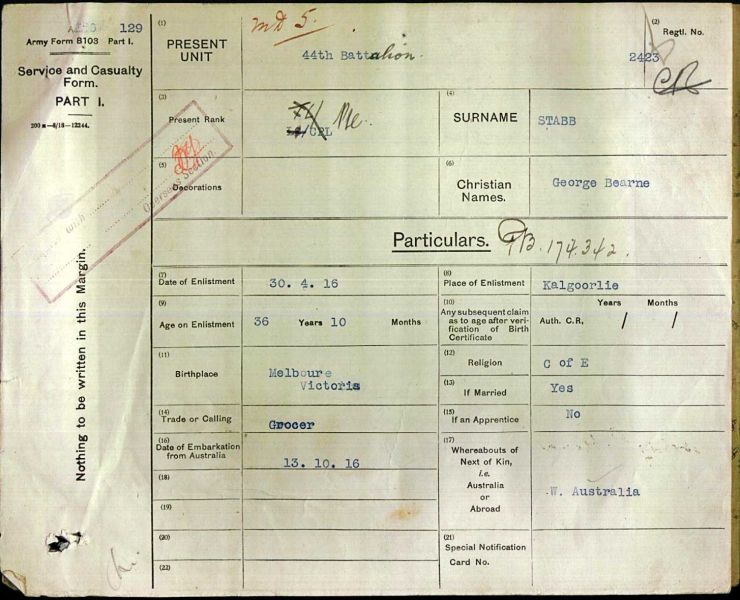 129
Army Form B103 Part I.
Service and Casualty
Form.
PART I.
200 m—8/18—12244.
Nothing to be written in this Margin.
Overseas Section.
(1)
PRESENT
UNIT
MD 5.
44th Battalion.
(2)
Regtl. No.
2423
(3)
Present Rank
/CPL Pte.
(4)
SURNAME
STABB
(5)
Decorations
(6)
Christian
Names.
George Bearne
Particulars.
B. 174342.
(7)
Date of Enlistment
30. 4. 16
(8)
Place of Enlistment
Kalgoorlie
(9)
Age on Enlistment
36 Years 10 Months
(10)
Any subsequent claim
as to age after veri-
fication of Birth
Certificate
Years Months
Auth. C.R, / /
(11)
Birthplace
Melboure
Victoria
(12)
Religion
C of E
(13)
If Married
Yes
(14)
Trade or Calling
Grocer
(15)
If an Apprentice
No
(16)
Date of Embarkation
from Australia
13. 10. 16
(17)
Whereabouts of
Next of Kin,
i.e.
Australia
or
Abroad
W. Australia
(18)
(19)
(20)
(21)
Special Notification
Card No.
(22)